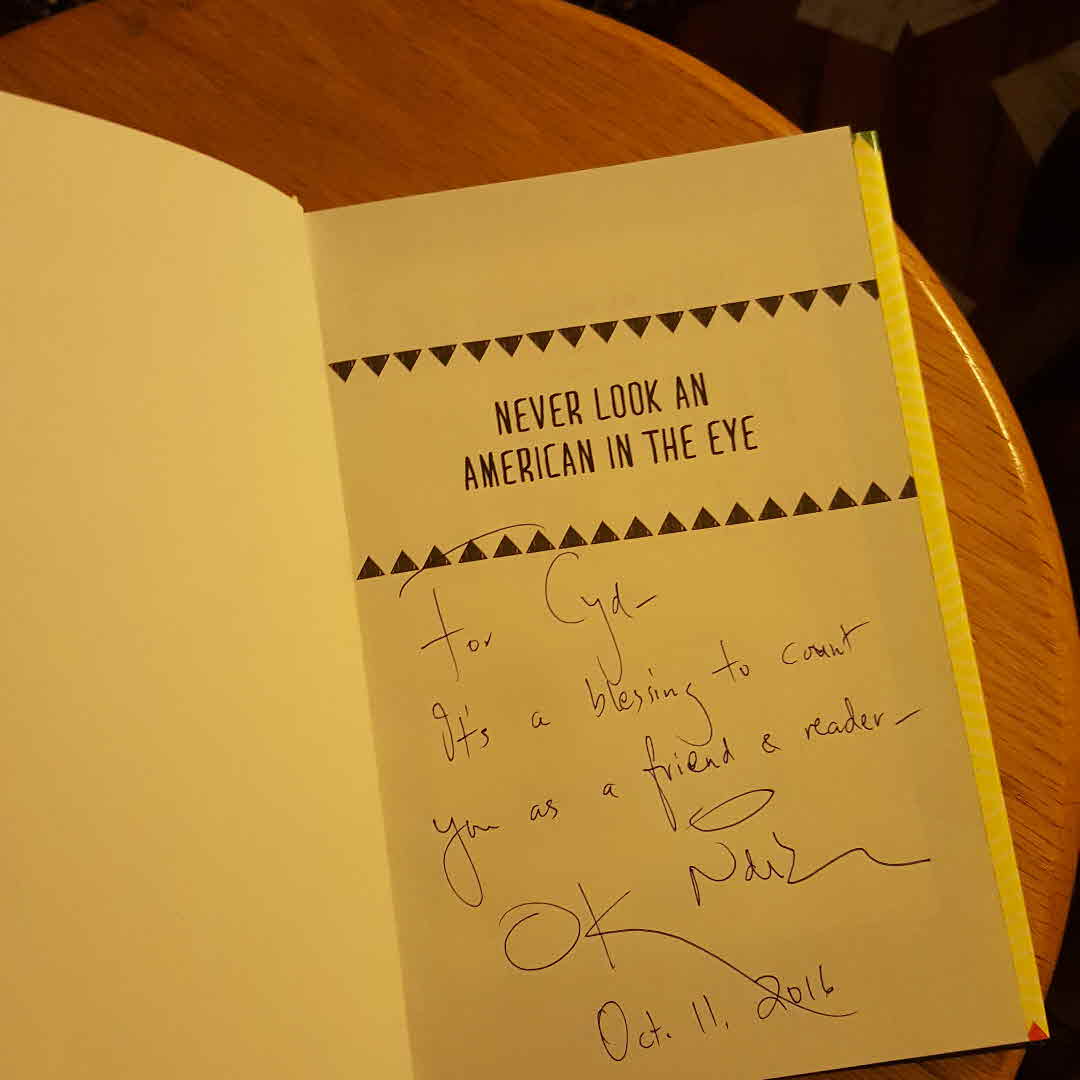 NEVER LOOK AN
AMERICAN IN THE EYE
For Cyd-
It's a blessing to count
you as a friend & reader-
OK Ndibe
Oct. 11, 2016